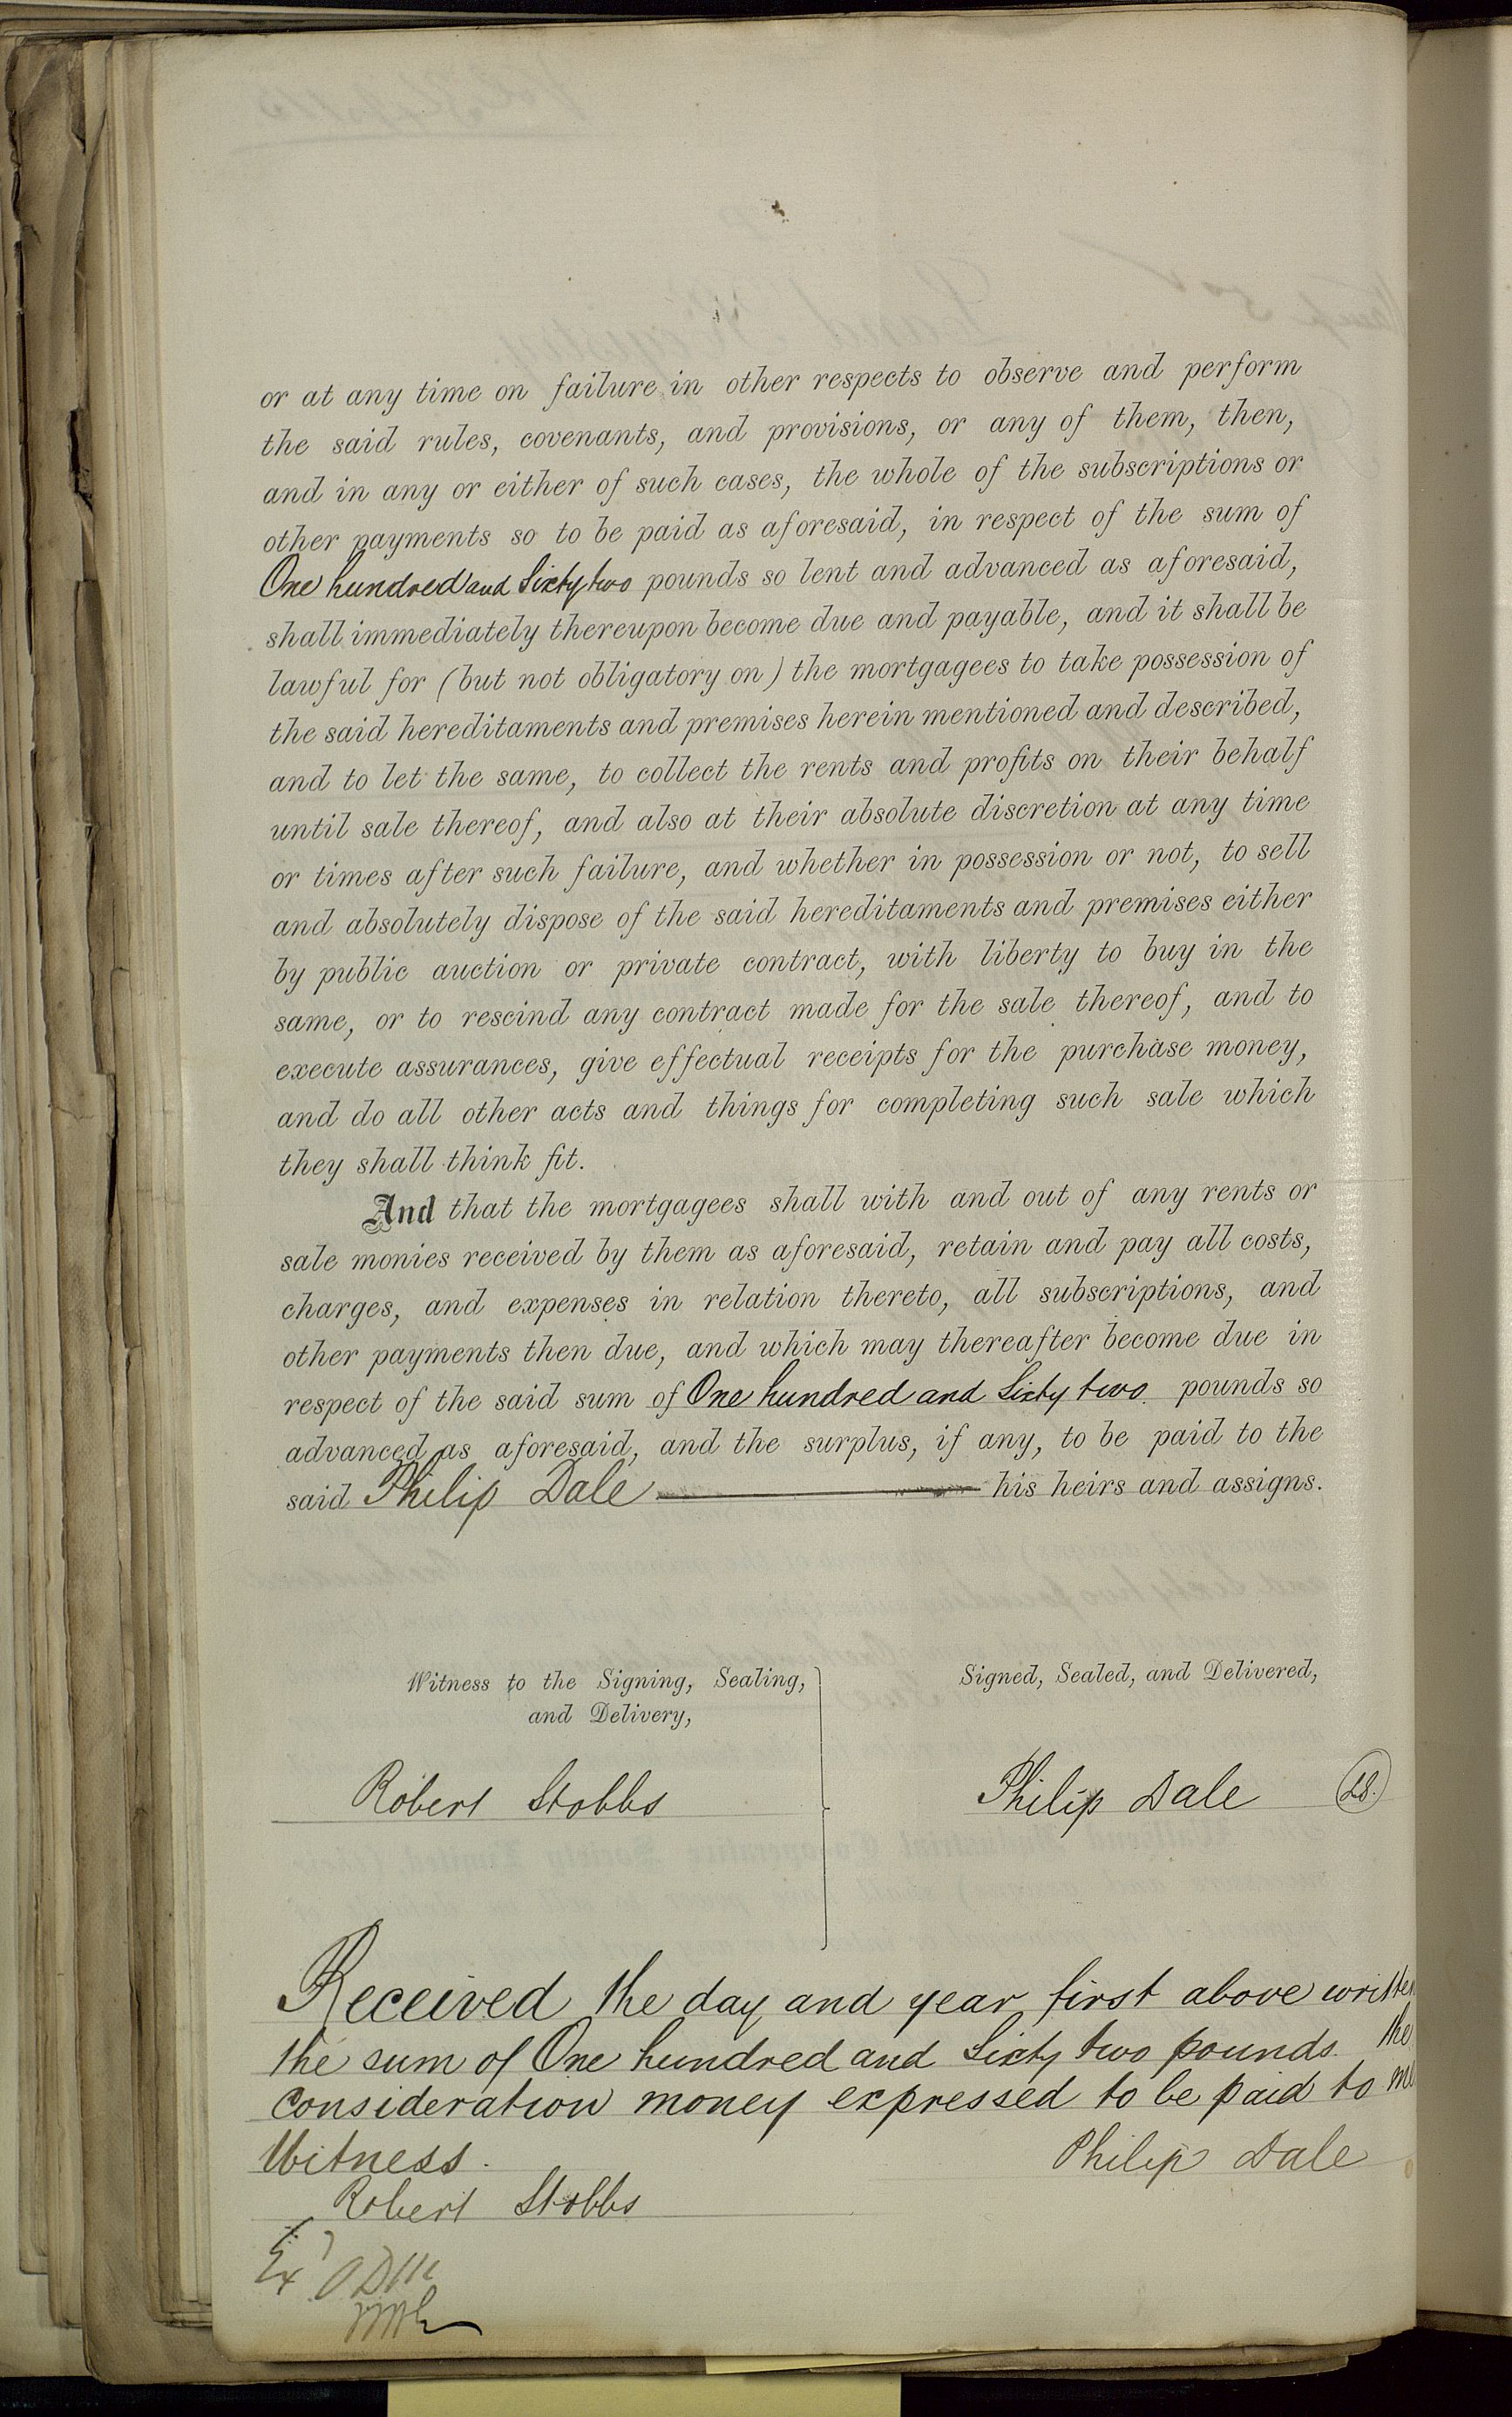 or at any time on failure in other respects to observe and perform
the said rules, covenants, and provisions, or any of them, then,
and in any or either of such cases, the whole of the subscriptions or
other payments so to be paid as aforesaid, in respect of the sum of
One hundred and Sixty two pounds so lent and advanced as aforesaid,
shall immediately thereupon become due and payable, and it shall be
lawful for (but not obligatory on) the mortgagees to take possession of
the said hereditaments and premises herein mentioned and described,
and to let the same, to collect the rents and profits on their behalf
until sale thereof, and also at their absolute discretion at any time
or times after such failure, and whether in possession or not, to sell
and absolutely dispose of the said hereditaments and premises either
by public auction or private contract, with liberty to buy in the
same, or to rescind any contract made for the sale thereof, and to
execute assurances, give effectual receipts for the purchase money,
and do all other acts and things for completing such sale which
they shall think fit.
And that the mortgagees shall with and out of any rents or
sale monies received by them as aforesaid, retain and pay all costs,
charges, and expenses in relation thereto, all subscriptions, and
other payments then due, and which may thereafter become due in
respect of the said sum of One hundred and Sixty two pounds so
advanced as aforesaid, and the surplus, if any, to be paid to the
said Philip Dale his heirs and assigns.
Witness to the Signing, Sealing,
and Delivery,
Robert Stobbs
Signed, Sealed, and Delivered,
Philip Dale LS.
Received the day and year first above written
the sum of One hundred and Sixty two pounds the
consideration money expressed to be paid to me
Witness.
Philip Dale
Robert Stobbs
Ex